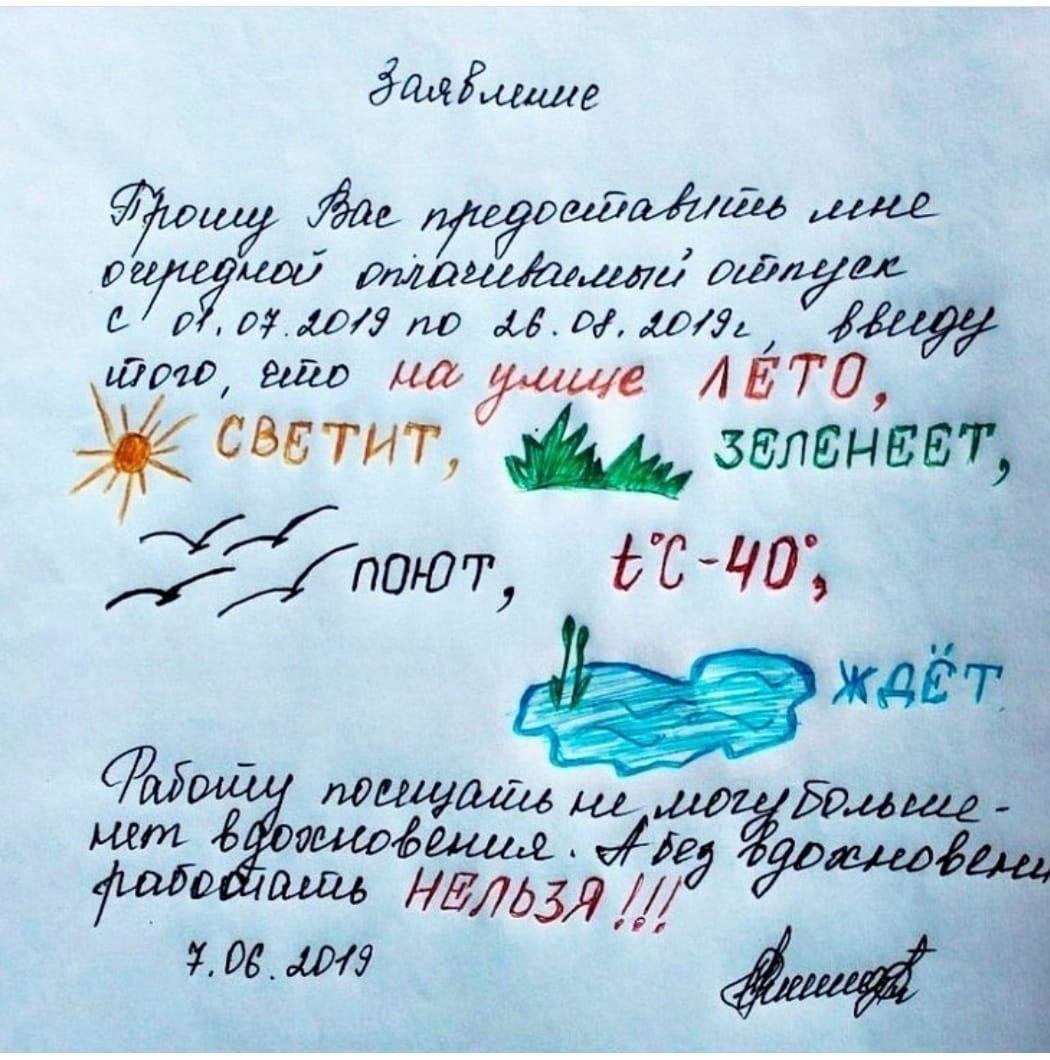 Заявление
Прошу Вас предоставить мне
очередной оплачиваемый отпуск
с 01.07.2019 по 26.08.2019г, ввиду
того, что на улице ЛЕТО,
СВЕТИТ, ЗЕЛЕНЕЕТ,
ПОЮТ, t°C-40°,
ЖДЁТ
Работу посещать не могу больше-
нет вдохновения. А без вдохновени
работать НЕЛЬЗЯ!!!
7.06.2019